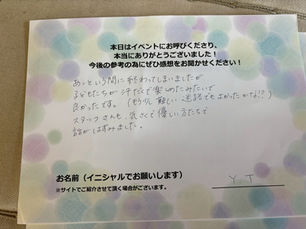 本日はイベントにお呼びくださり、
本当にありがとうございました！
今後の参考の為にぜひ感想をお聞かせください！
あっという間に終わってしまいましたが
子どもたちが汗だくで楽しめたみたいで
良かったです。(もう少し難しい迷路でもよかったかな!?)
スタッフさんも、気さくで優しい方たちで
話がはずみました。
お名前（イニシャルでお願いします）
Y.T
※サイトでご紹介させて頂く場合がございます。